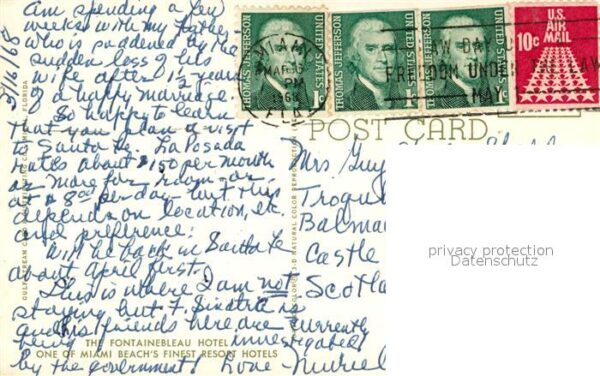 3/16/68
am spending a few
weeks with my father
who is saddened by the
sudden loss of his
wife after 1½ years
of a happy marriage.
So happy to learn
that you plan a visit
to Santa Fe. La Posada
rates about $150 per month
or more for room or
at $8.00 per day but this
depends on location, etc.
and preference.
Will be back in Santa Fe
about April first.
This is where I am not
staying but F. Sinatra is
and his friends here are currently
being investigated
by the government! Love - Muriel
THE FONTAINEBLEAU HOTEL
ONE OF MIAMI BEACH'S FINEST RESORT HOTELS
THOMAS JEFFERSON
UNITED STATES
1c
THOMAS JEFFERSON
UNITED STATES
1c
THOMAS JEFFERSON
UNITED STATES
1c
U.S.
AIR
MAIL
10c
MIAMI
MAR
PM
1968
FLA
LAW DAY
FREEDOM UNDER THE LAW
MAY
POST CARD
Mrs Guy
Balmac
Castle
Scotla
privacy protection
Datenschutz